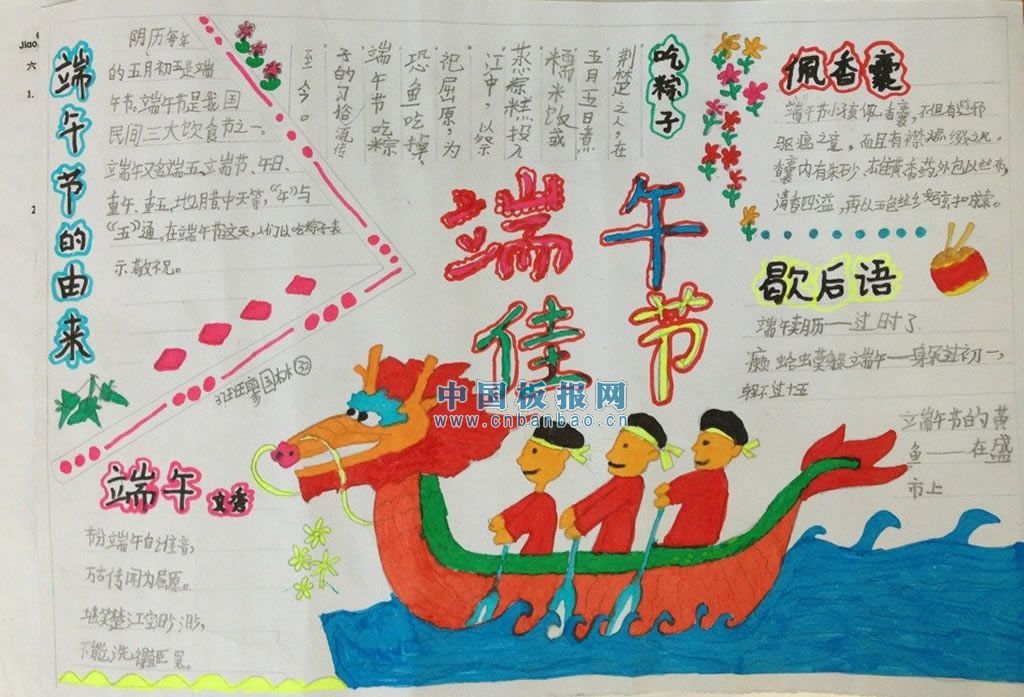 Jiao
六
1.
2
端午节的由来
阴历每年
的五月初五是端
午节。端午节是我国
民间三大饮食节之一。
端午又名端五、立端节、午日、
重午、重五、地月昔中天等，“午”与
“五”通。在端午节这天，人们以吃粽子表
示敬祝。
吃粽子
荆楚之人，在
五月五日煮
糯米饭或
蒸粽糕投入
江中，以祭
祀屈原，为
恐鱼吃掉，
端午节吃粽
子的习俗流传
至今。
佩香囊
端午节小孩佩香囊，不但有避邪
驱瘟之意，而且有襟头点缀之风。
香囊内有朱砂、雄黄、香药，外包以丝布，
清香四溢，再以五色丝线弦扣成索。
歇后语
端午卖月历——过时了
癞蛤虫莫躲端午——躲过初一，
躲不过十五
立端午节的黄
鱼——在盛
市上
端午佳节
中国板报网
www.cnbanbao.cn
班廖国木
端午 文秀
节分端午自谁言，
万古传闻为屈原。
堪笑楚江空渺渺，
不能洗得直臣冤。